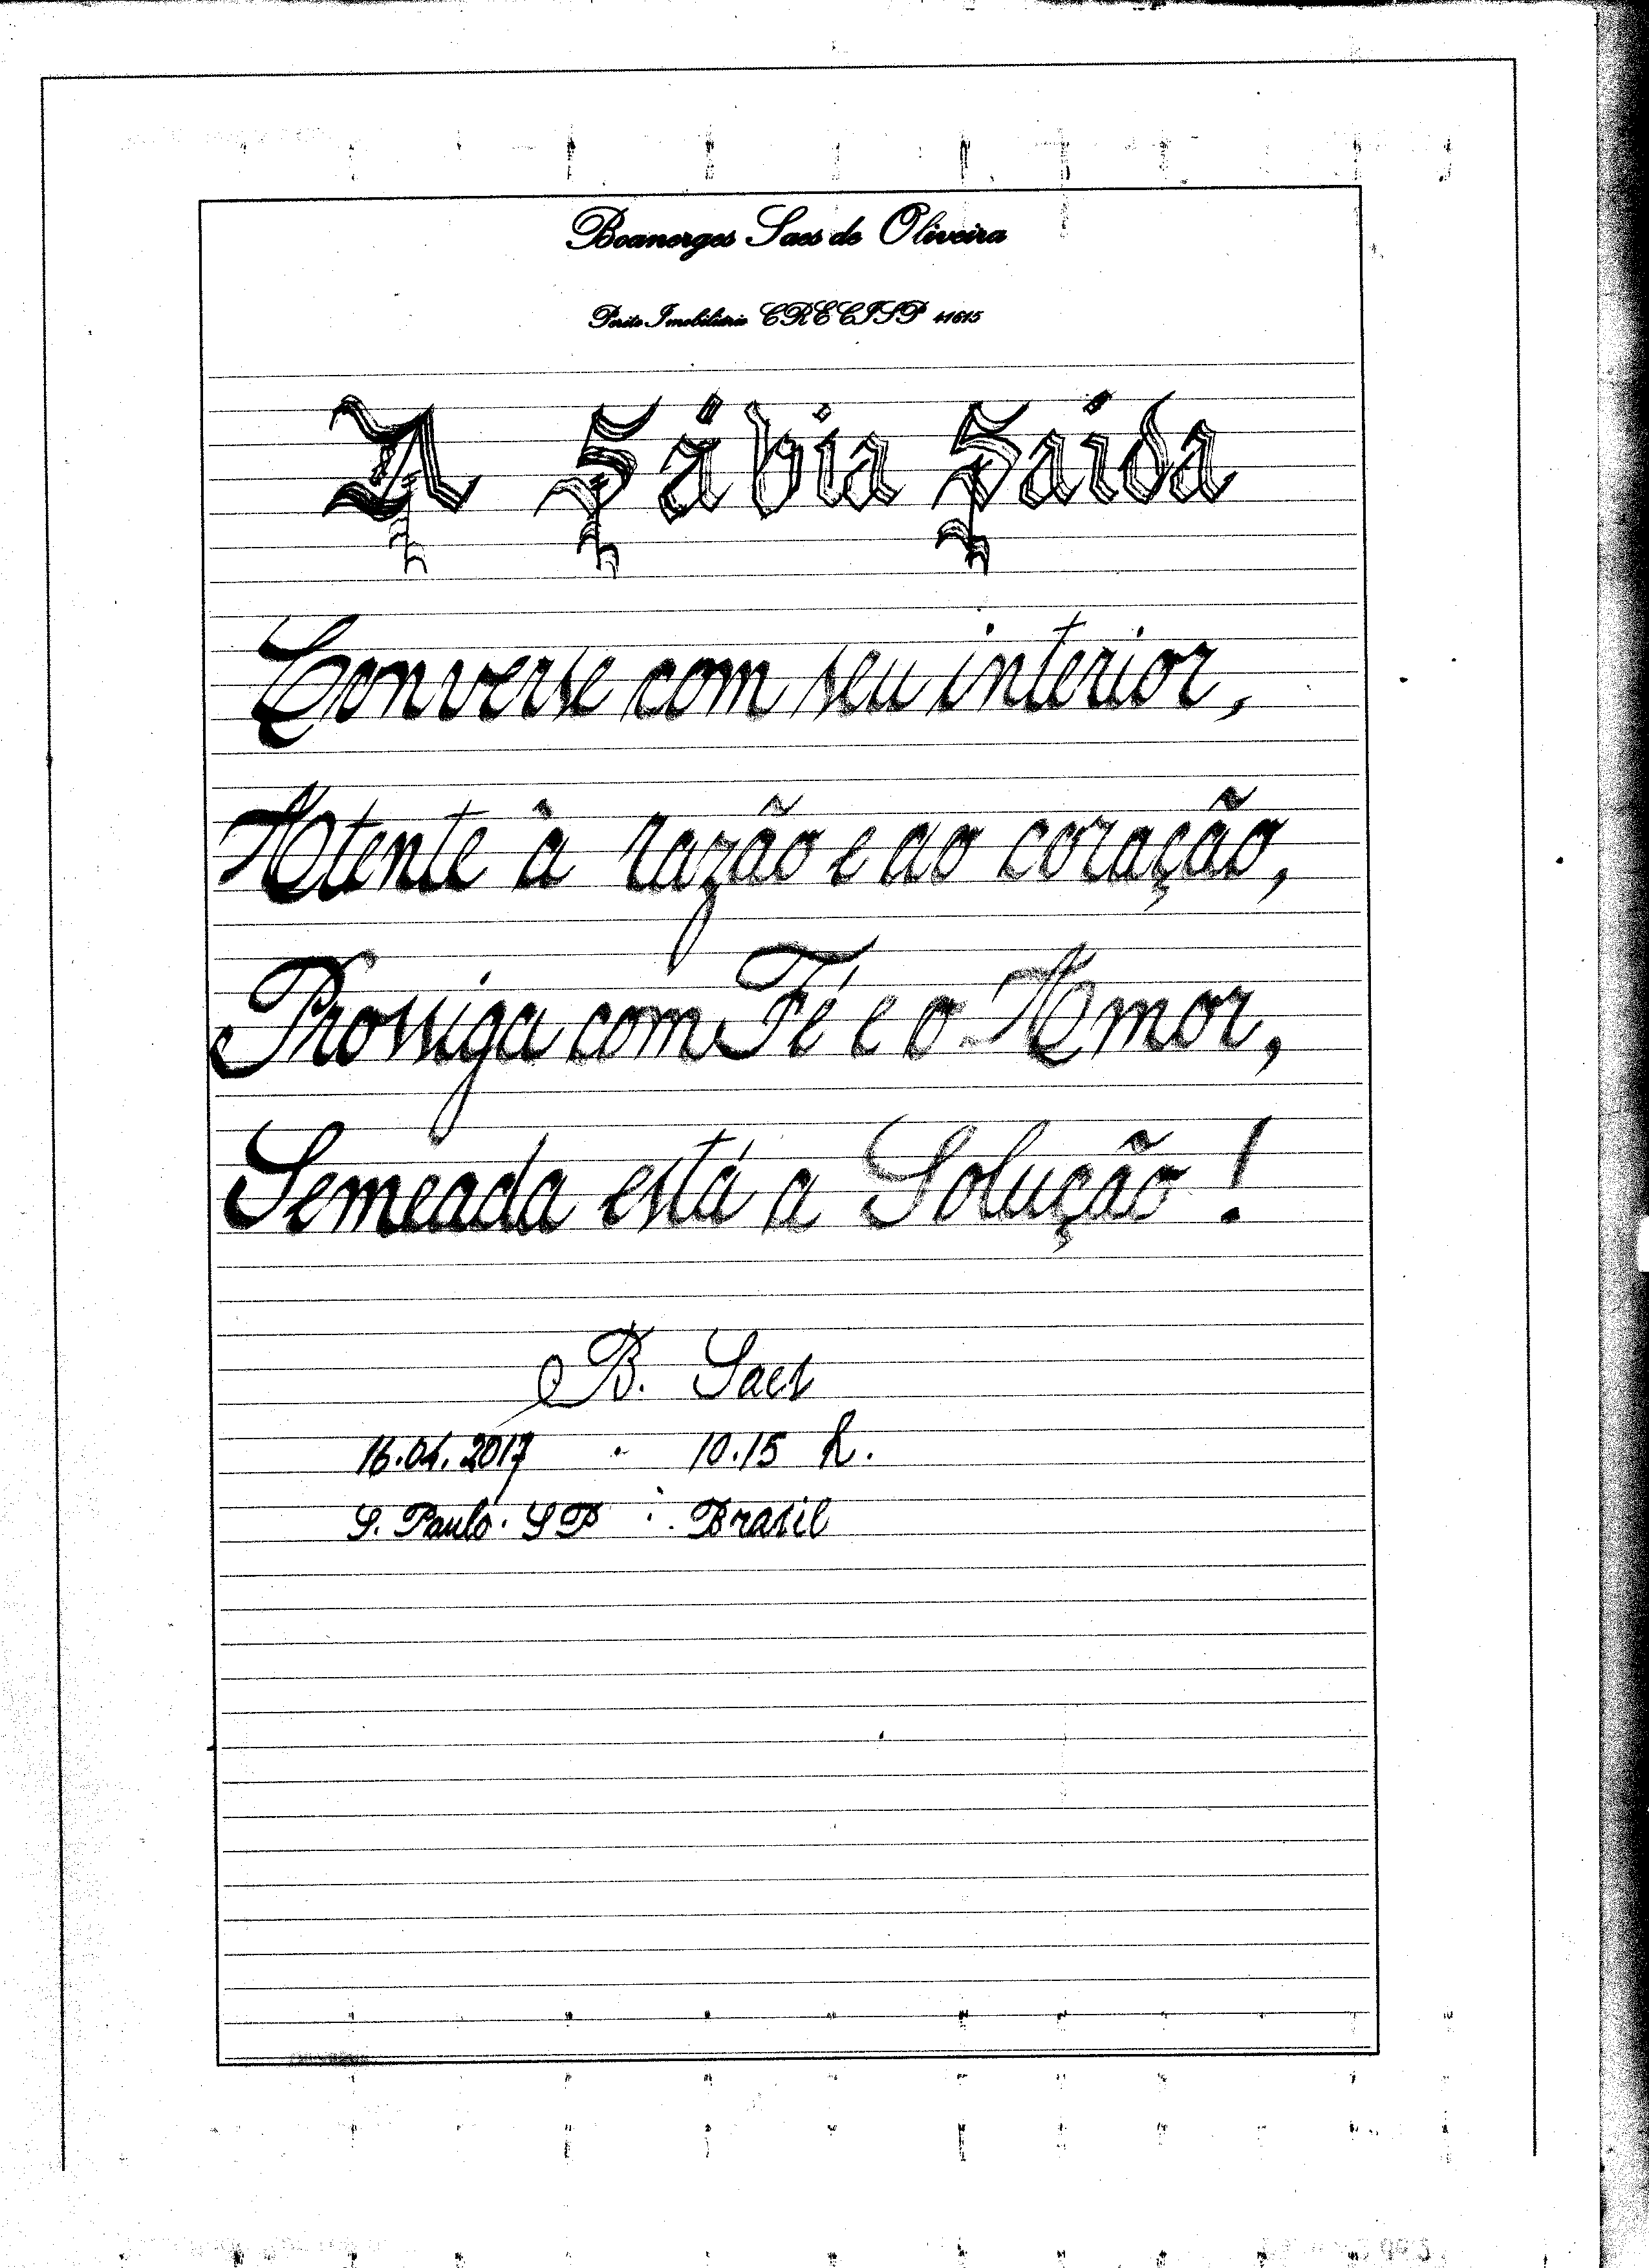 Boanerges Saes de Oliveira
Perito Imobiliário CRECISP 41615
A Sábia Saída
Converse com seu interior,
Atente à razão e ao coração,
Prossiga com Fé e o Amor,
Semeada está a Solução!
B. Saes
16.04.2017 . 10.15 h.
S. Paulo. SP ∴ Brasil